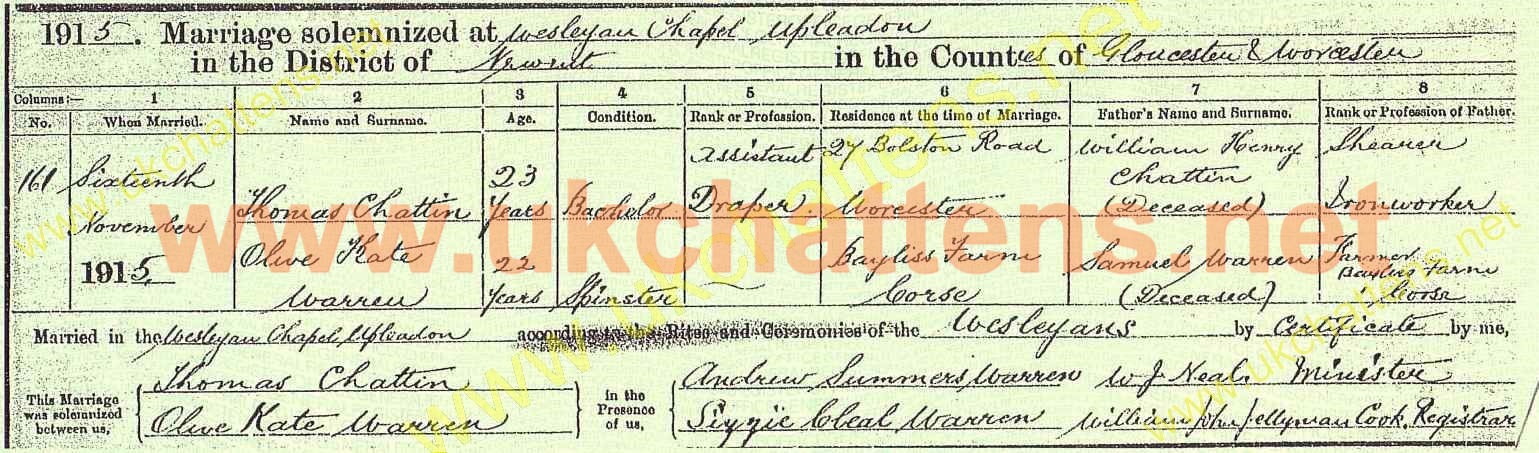 1915. Marriage solemnized at Wesleyan Chapel Upleadon
in the District of Newent in the Counties of Gloucester & Worcester
Columns:— 1 2 3 4 5 6 7 8
No. When Married. Name and Surname. Age. Condition. Rank or Profession. Residence at the time of Marriage. Father's Name and Surname. Rank or Profession of Father.
161 Sixteenth November 1915. Thomas Chattin 23 Years Bachelor Assistant Draper. 27 Bolston Road Worcester William Henry Chattin (Deceased) Shearer Ironworker
Olive Kate Warren 22 Years Spinster — Bayliss Farm Corse Samuel Warren (Deceased) Farmer Bayliss Farm Corse
Married in the Wesleyan Chapel, Upleadon according to the Rites and Ceremonies of the Wesleyans by Certificate by me,
This Marriage was solemnized between us, Thomas Chattin Olive Kate Warren in the Presence of us, Andrew Summers Warren Lizzie Cleal Warren W J Neal. Minister William John Jellyman Cook. Registrar
www.ukchattens.net